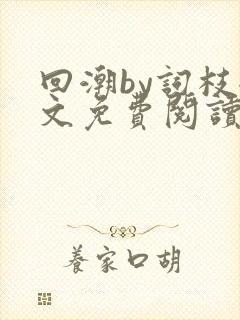 回潮by詞枝
文免費閱讀
養家口胡